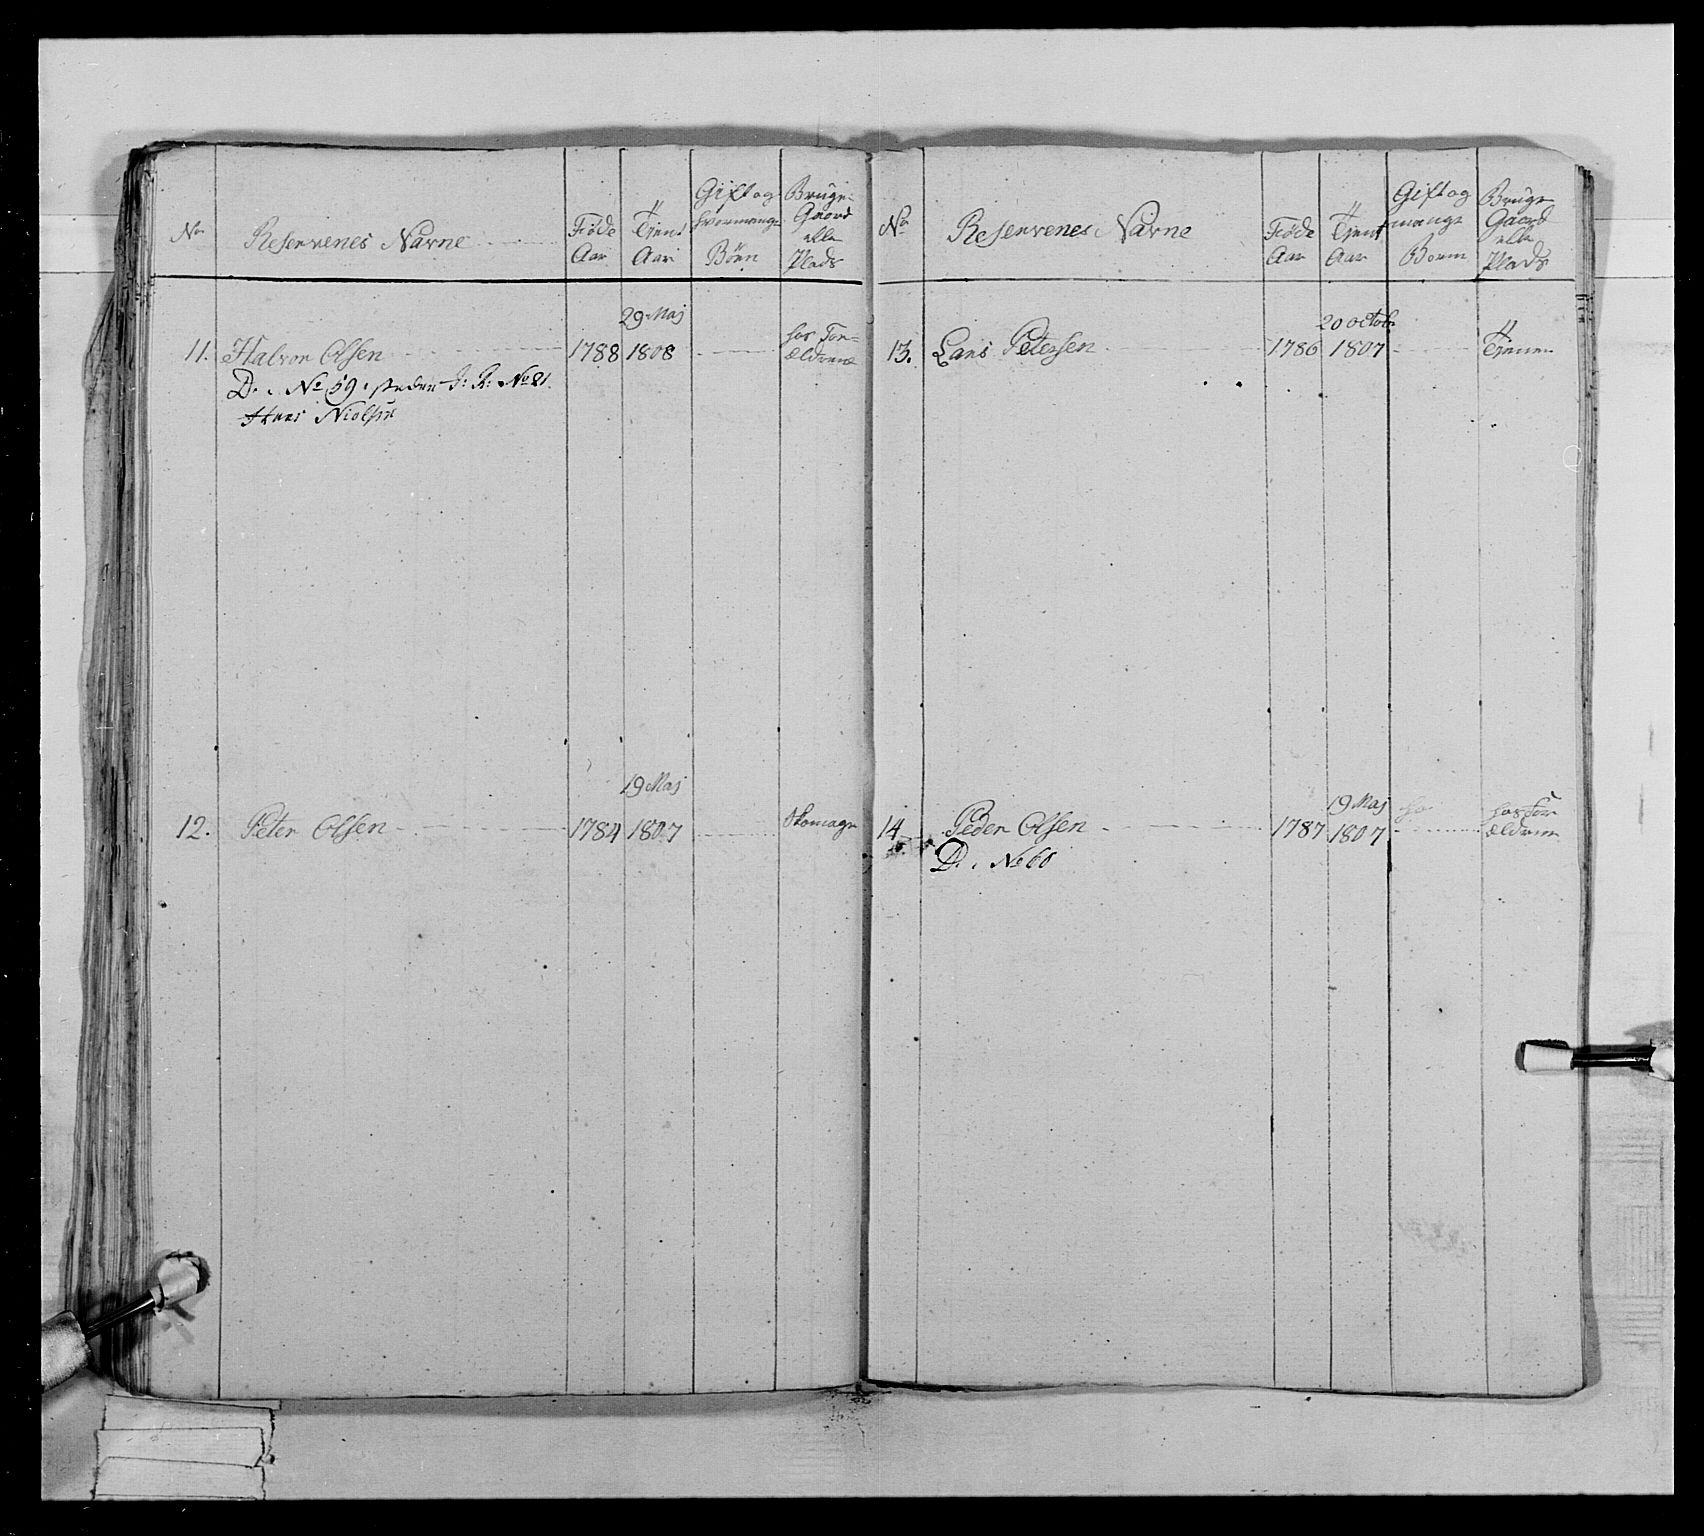 No
Reservenes Navne
Føde
Aar
Tient
Aar
Gift og
hvormange
Børn
Bruger
Gaard
eller
Plads
29 Maj
11. Halvor Olsen 1788 1808 hos For=
ældrene
D. No 59 i steden I: R: No 21.
Hans Nielsen
19 Maj
12. Peter Olsen 1784 1807 Skomager
No
Reservenes Navne
Føde
Aar
Tient
Aar
Gift og
mange
Børn
Bruger
Gaard
eller
Plads
20 octob
13. Lars Petersen 1786 1807 Tiener
19 Maj
14 Peder Olsen 1787 1807 hos For
ældrene
D. No 60